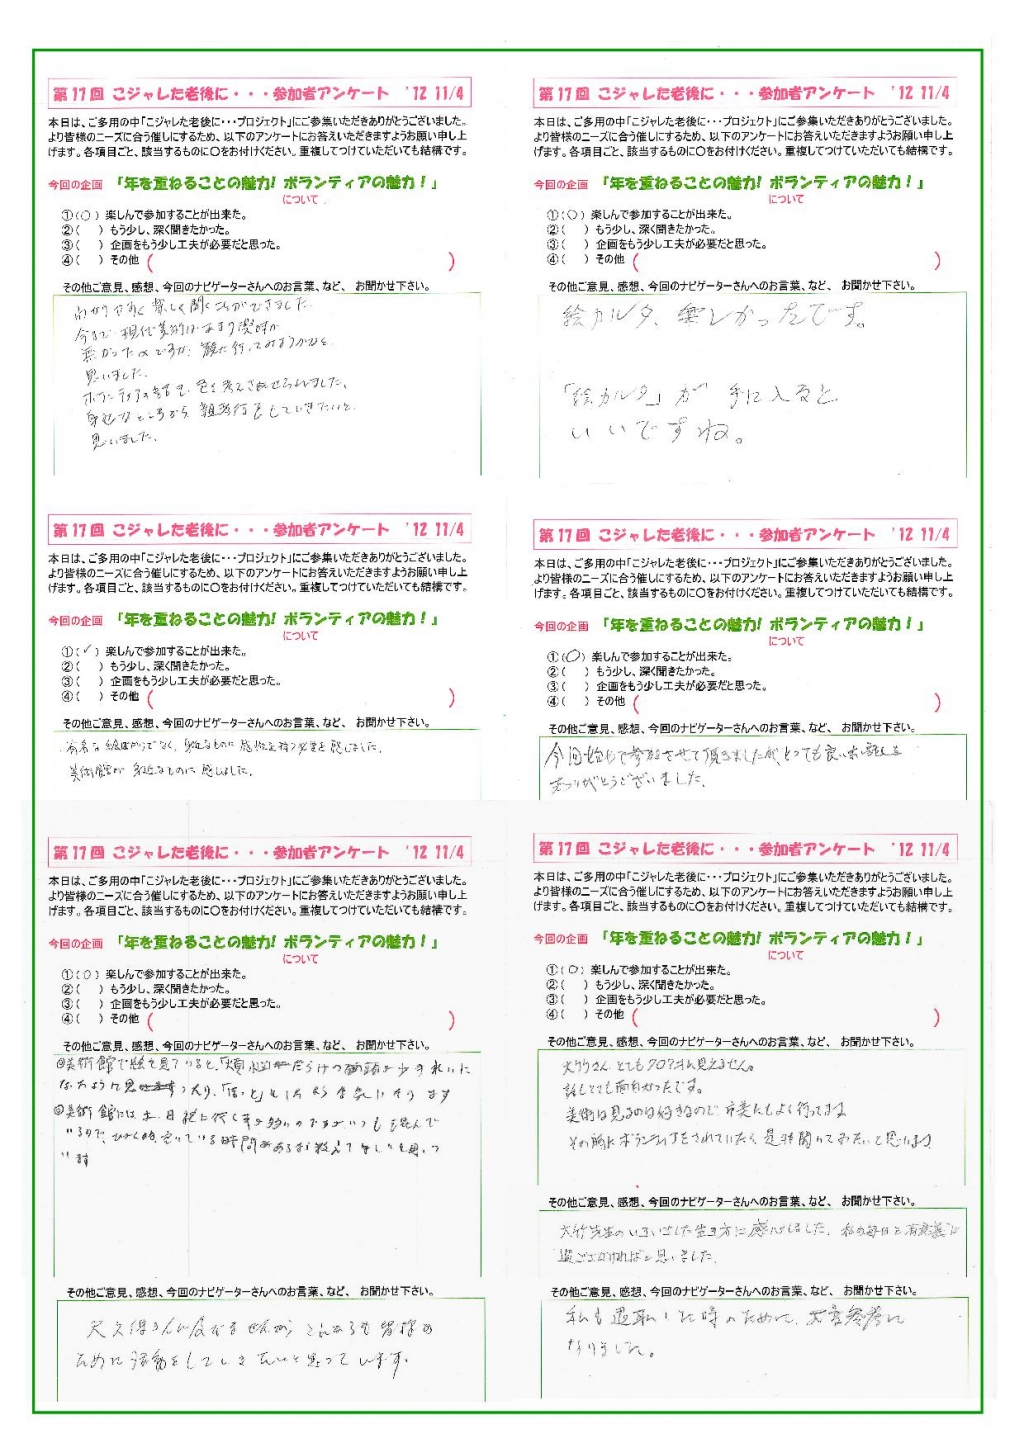 第17回 こジャした老後に・・・参加者アンケート '12 11/4
本日は、ご多用の中「こジャした老後に・・・プロジェクト」にご参集いただきありがとうございました。
より皆様のニーズに合う催しにするため、以下のアンケートにお答えいただきますようお願い申し上
げます。各項目ごと、該当するものに〇をお付けください。重複してつけていただいても結構です。
今回の企画 「年を重ねることの魅力! ボランティアの魅力!」
について
①(○) 楽しんで参加することが出来た。
②( ) もう少し、深く聞きたかった。
③( ) 企画をもう少し工夫が必要だと思った。
④( ) その他 ( )
その他ご意見、感想、今回のナビゲーターさんへのお言葉、など、 お聞かせ下さい。
わかりやすく楽しく聞くことができました。
今まで現代美術はあまり興味が
無かったのですが、観に行ってみようかなと
思いました。
色々考えさせられました。
身近なところから、親孝行をしていきたいと
思いました。
第17回 こジャした老後に・・・参加者アンケート '12 11/4
本日は、ご多用の中「こジャした老後に・・・プロジェクト」にご参集いただきありがとうございました。
より皆様のニーズに合う催しにするため、以下のアンケートにお答えいただきますようお願い申し上
げます。各項目ごと、該当するものに〇をお付けください。重複してつけていただいても結構です。
今回の企画 「年を重ねることの魅力! ボランティアの魅力!」
について
①(○) 楽しんで参加することが出来た。
②( ) もう少し、深く聞きたかった。
③( ) 企画をもう少し工夫が必要だと思った。
④( ) その他 ( )
その他ご意見、感想、今回のナビゲーターさんへのお言葉、など、 お聞かせ下さい。
絵カルタ、楽しかったです。
「絵カルタ」が手に入ると
いいですね。
第17回 こジャした老後に・・・参加者アンケート '12 11/4
本日は、ご多用の中「こジャした老後に・・・プロジェクト」にご参集いただきありがとうございました。
より皆様のニーズに合う催しにするため、以下のアンケートにお答えいただきますようお願い申し上
げます。各項目ごと、該当するものに〇をお付けください。重複してつけていただいても結構です。
今回の企画 「年を重ねることの魅力! ボランティアの魅力!」
について
①(✓) 楽しんで参加することが出来た。
②( ) もう少し、深く聞きたかった。
③( ) 企画をもう少し工夫が必要だと思った。
④( ) その他 ( )
その他ご意見、感想、今回のナビゲーターさんへのお言葉、など、 お聞かせ下さい。
有名な絵ばかりでなく、身近なものに感性を持つ必要を感じました。
美術館が身近なものに感じました。
第17回 こジャした老後に・・・参加者アンケート '12 11/4
本日は、ご多用の中「こジャした老後に・・・プロジェクト」にご参集いただきありがとうございました。
より皆様のニーズに合う催しにするため、以下のアンケートにお答えいただきますようお願い申し上
げます。各項目ごと、該当するものに〇をお付けください。重複してつけていただいても結構です。
今回の企画 「年を重ねることの魅力! ボランティアの魅力!」
について
①(○) 楽しんで参加することが出来た。
②( ) もう少し、深く聞きたかった。
③( ) 企画をもう少し工夫が必要だと思った。
④( ) その他 ( )
その他ご意見、感想、今回のナビゲーターさんへのお言葉、など、 お聞かせ下さい。
今回始めて参加させて頂きましたが、とても良いお話しを
ありがとうございました。
第17回 こジャした老後に・・・参加者アンケート '12 11/4
本日は、ご多用の中「こジャした老後に・・・プロジェクト」にご参集いただきありがとうございました。
より皆様のニーズに合う催しにするため、以下のアンケートにお答えいただきますようお願い申し上
げます。各項目ごと、該当するものに〇をお付けください。重複してつけていただいても結構です。
今回の企画 「年を重ねることの魅力! ボランティアの魅力!」
について
①(○) 楽しんで参加することが出来た。
②( ) もう少し、深く聞きたかった。
③( ) 企画をもう少し工夫が必要だと思った。
④( ) その他 ( )
その他ご意見、感想、今回のナビゲーターさんへのお言葉、など、 お聞かせ下さい。
◎美術館で絵を見ていると、煩悩だらけの
◎美術館には土、日、祝に行く事が多いのですがいつも混んで
いるので、
います
第17回 こジャした老後に・・・参加者アンケート '12 11/4
本日は、ご多用の中「こジャした老後に・・・プロジェクト」にご参集いただきありがとうございました。
より皆様のニーズに合う催しにするため、以下のアンケートにお答えいただきますようお願い申し上
げます。各項目ごと、該当するものに〇をお付けください。重複してつけていただいても結構です。
今回の企画 「年を重ねることの魅力! ボランティアの魅力!」
について
①(○) 楽しんで参加することが出来た。
②( ) もう少し、深く聞きたかった。
③( ) 企画をもう少し工夫が必要だと思った。
④( ) その他 ( )
その他ご意見、感想、今回のナビゲーターさんへのお言葉、など、 お聞かせ下さい。
とても70才に見えません。
話しとても面白かったです。
美術は見るのは好きなので、市美にもよく行ってます
その時にボランティアをされていたら是非聞いてみたいと思います
その他ご意見、感想、今回のナビゲーターさんへのお言葉、など、 お聞かせ下さい。
大竹先生のいきいきした生き方に感心しました。私の毎日も有意義に
過ごさなければと思いました。
その他ご意見、感想、今回のナビゲーターさんへのお言葉、など、 お聞かせ下さい。
これからも皆様の
ために活動をしていきたいと思っています。
その他ご意見、感想、今回のナビゲーターさんへのお言葉、など、 お聞かせ下さい。
私も退職した時のために、大変参考に
なりました。